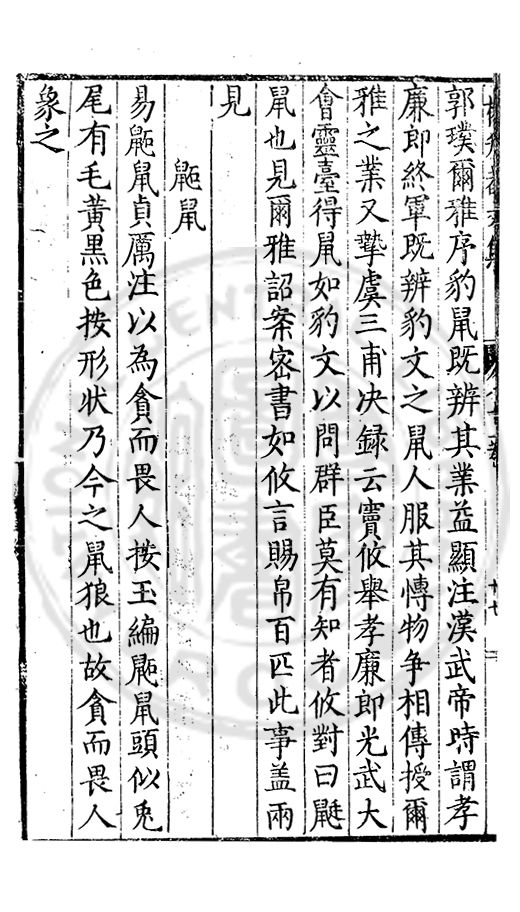 郭璞爾雅序豹鼠既辨其業益顯注漢武帝時謂孝
廉郎終軍既辨豹文之鼠人服其博物争相傳授爾
雅之業又摯虞三甫决録云竇攸舉孝廉郎光武大
會靈臺得鼠如豹文以問群臣莫有知者攸對曰鼮
鼠也見爾雅詔案密書如攸言賜帛百匹此事盖兩
見
鼫鼠
易鼫鼠貞厲注以為貪而畏人按玉編鼫鼠頭似兎
尾有毛黄黒色按形状乃今之鼠狼也故貪而畏人
象之